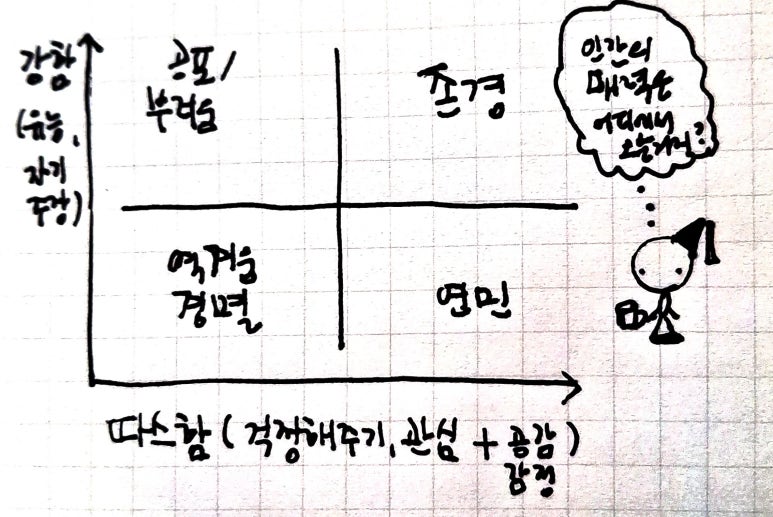 강함
(유능,
자기
주장)
공포/
부러움
존경
역겨움
경멸
연민
따스함 (걱정해주기, 관심 + 공감)
감정
인간의
매력은
어디에서
오는거지?